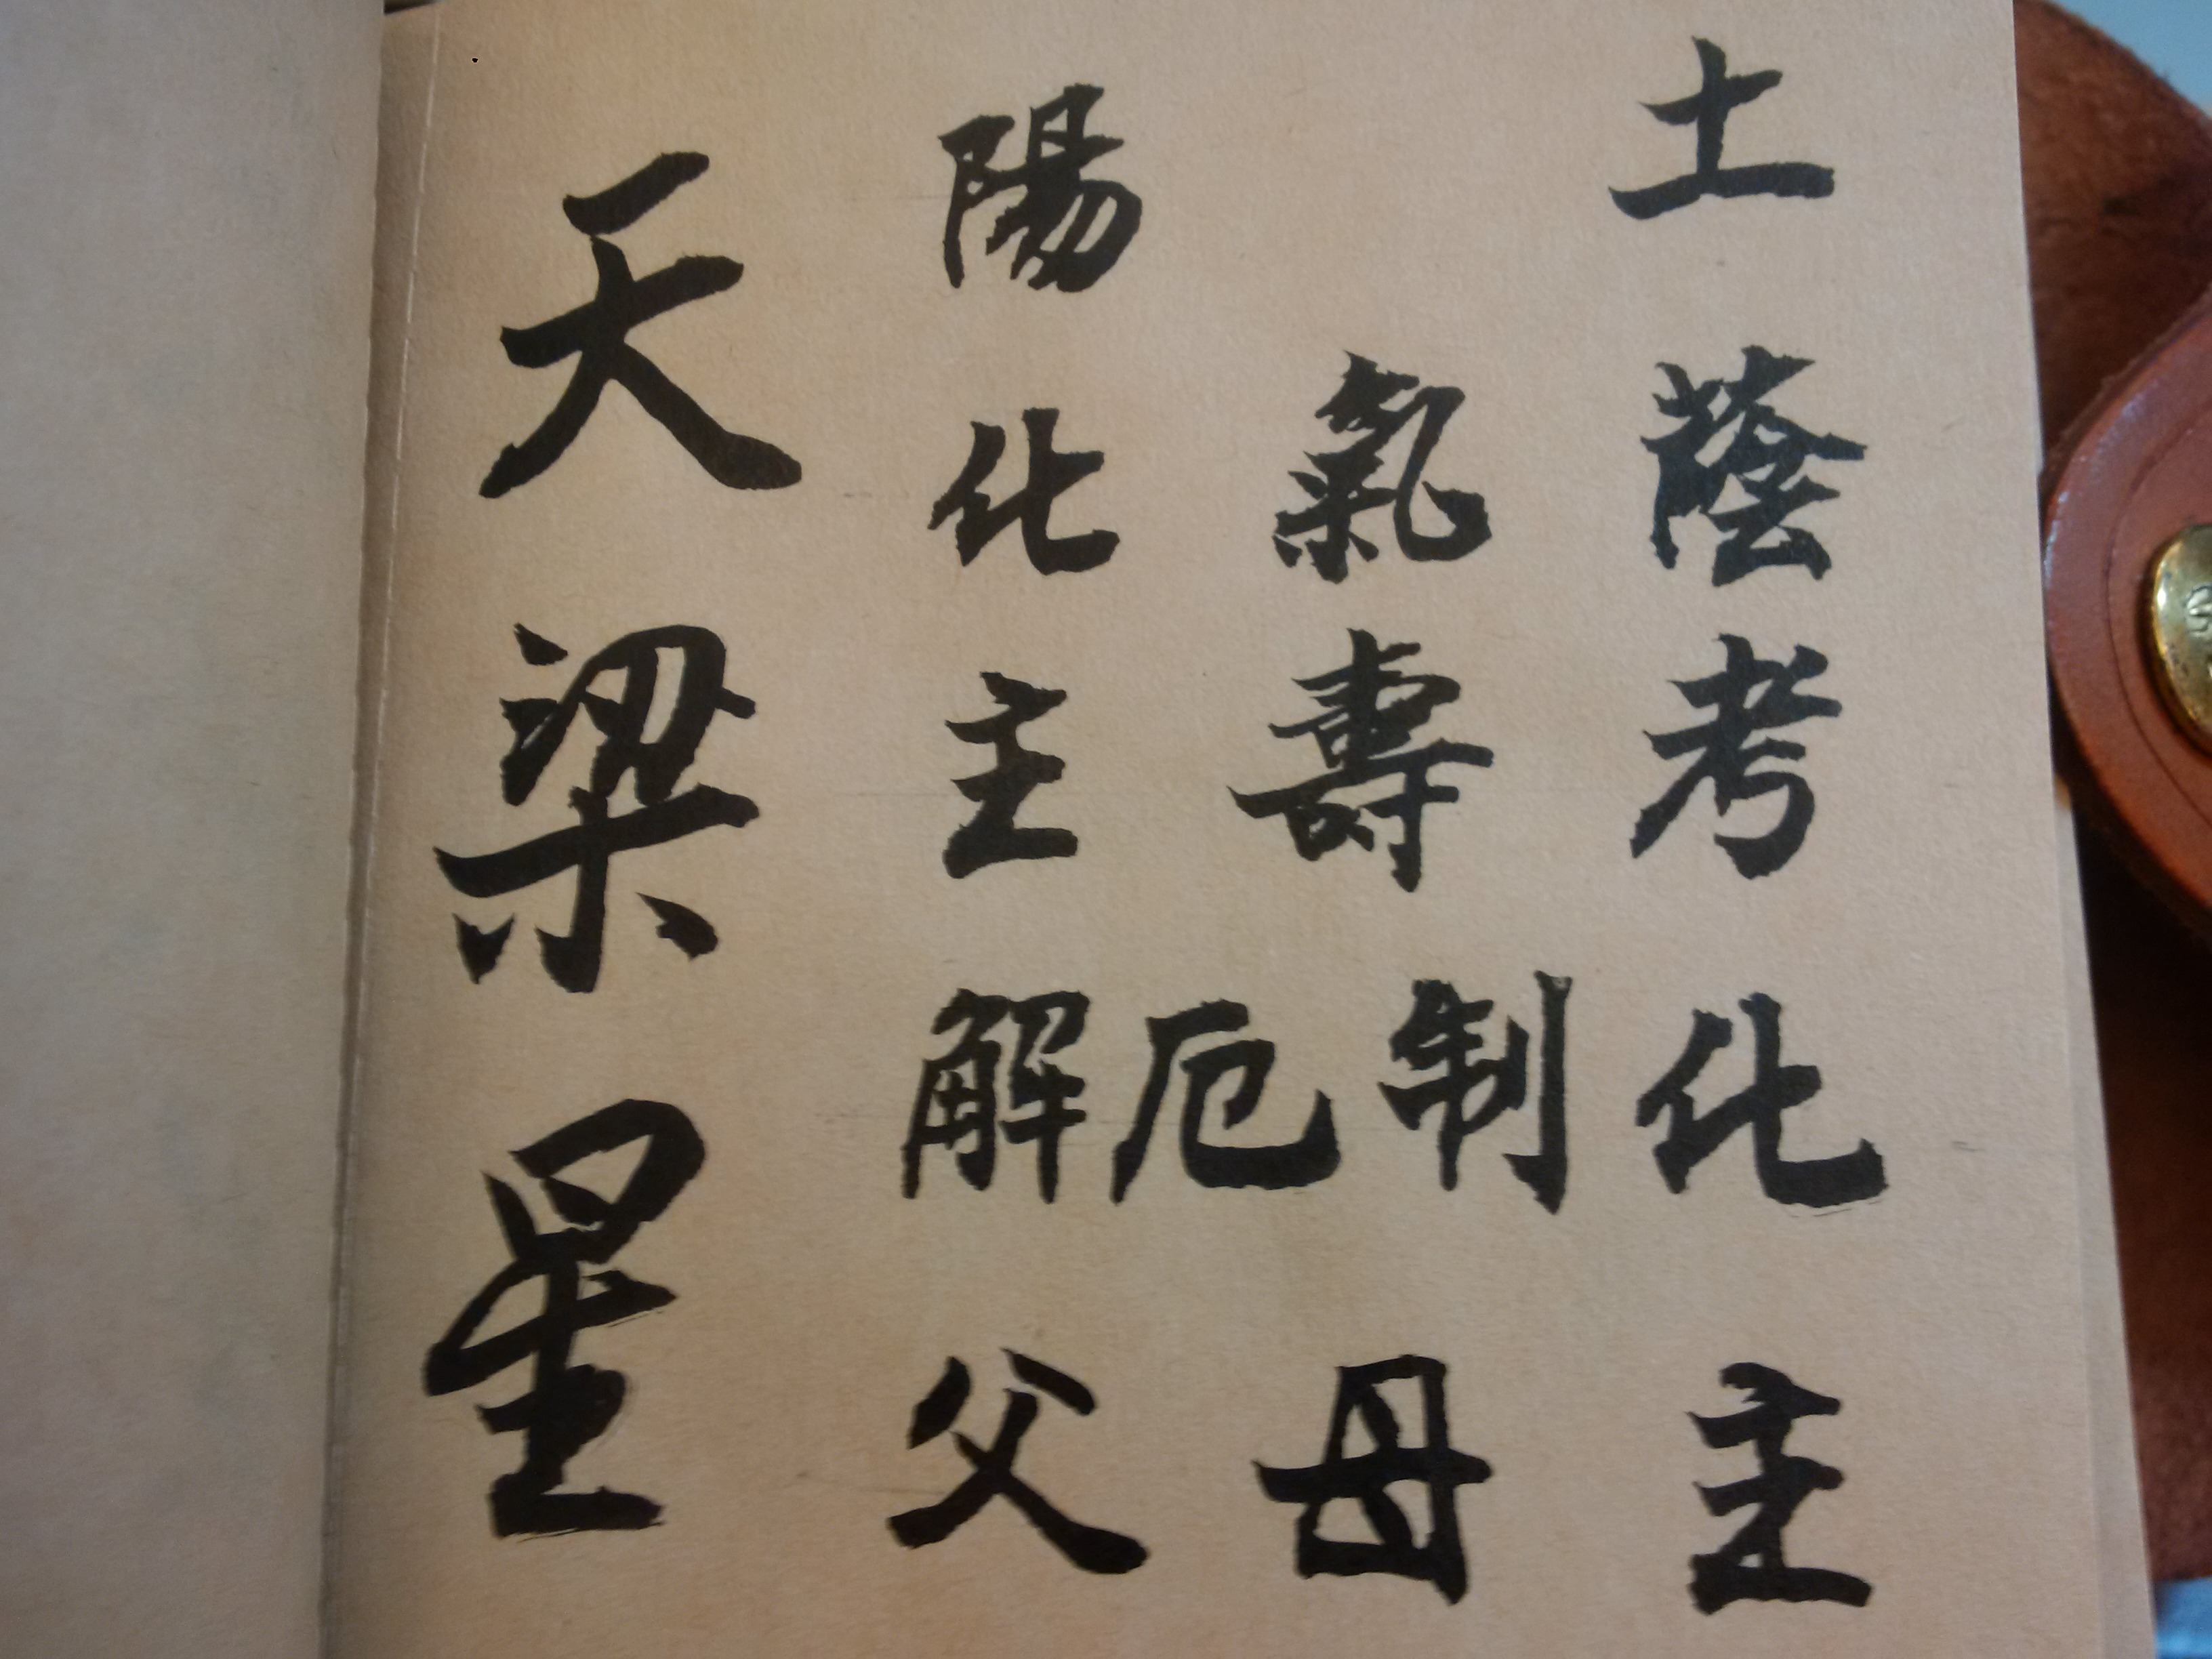 天梁星
陽土
化氣蔭
主壽考
解厄制化
父母主